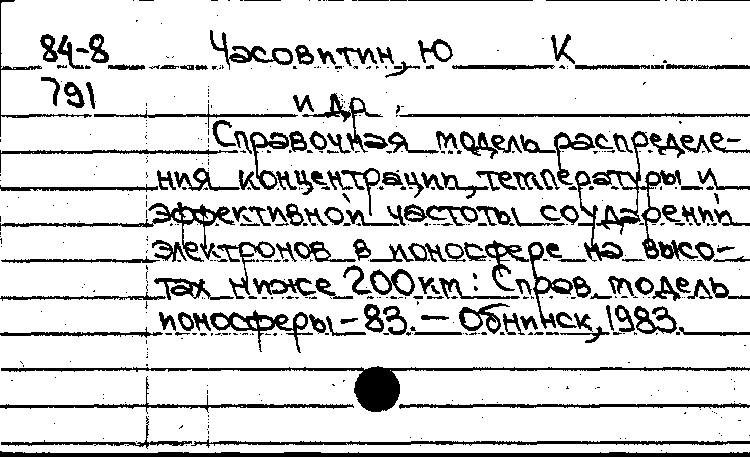 84-8 Часовитин, Ю К
791 и др.
Справочная модель распределе-
ния концентрации, температуры и
эффективной частоты соударений
электронов в ионосфере на высо-
тах ниже 200км: Справ. модель
ионосферы-83. – Обнинск, 1983.